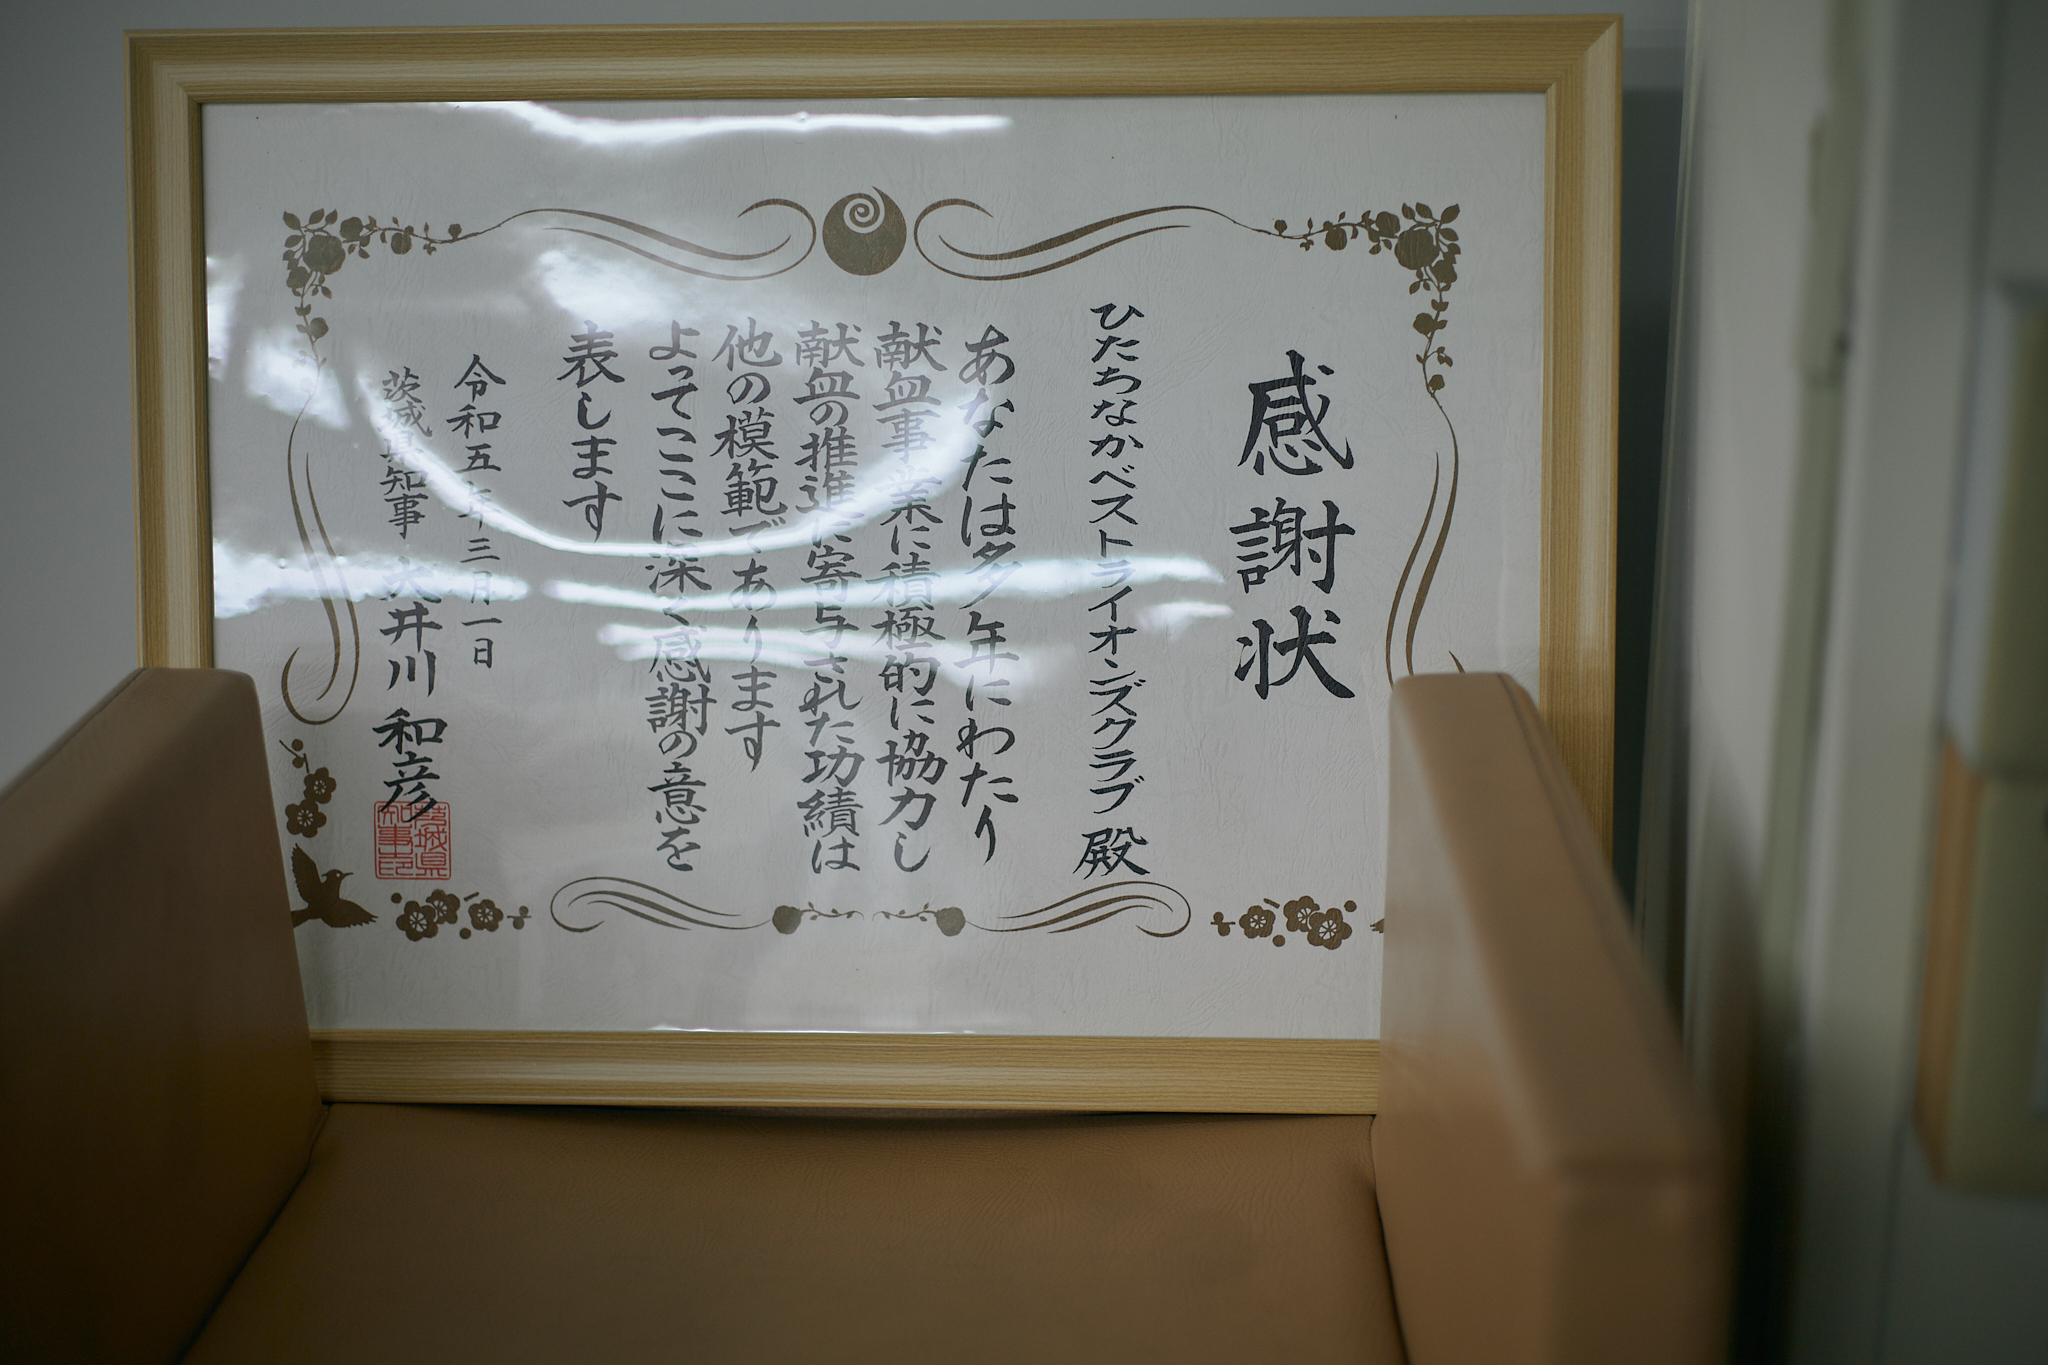 感謝状
ひたちなかベストライオンズクラブ 殿
あなたは多年にわたり
献血事業に積極的に協力し
献血の推進に寄与された功績は
他の模範であります
よってここに深く感謝の意を
表します
令和五年三月一日
茨城県知事 大井川 和彦
茨城県
知事印